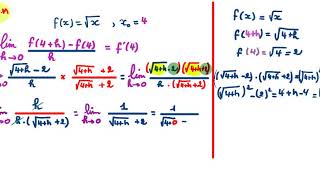 f(x) = √x , x₀ = 4
lim h→0 f(4+h) - f(4) / h = f'(4)
√4+h - 2 / h × √4+h + 2 / √4+h + 2 = lim h→0 (√4+h - 2)(√4+h + 2) / h · (√4+h + 2)
h / h · (√4+h + 2) = lim h→0 1 / √4+h + 2 = 1 / √4+0
f(x) = √x
f(4+h) = √4+h
f(4) = √4 = 2
(√4+h - 2) · (√4+h + 2) = (√4+h)
(√4+h)² - (2)² = 4+h-4 =